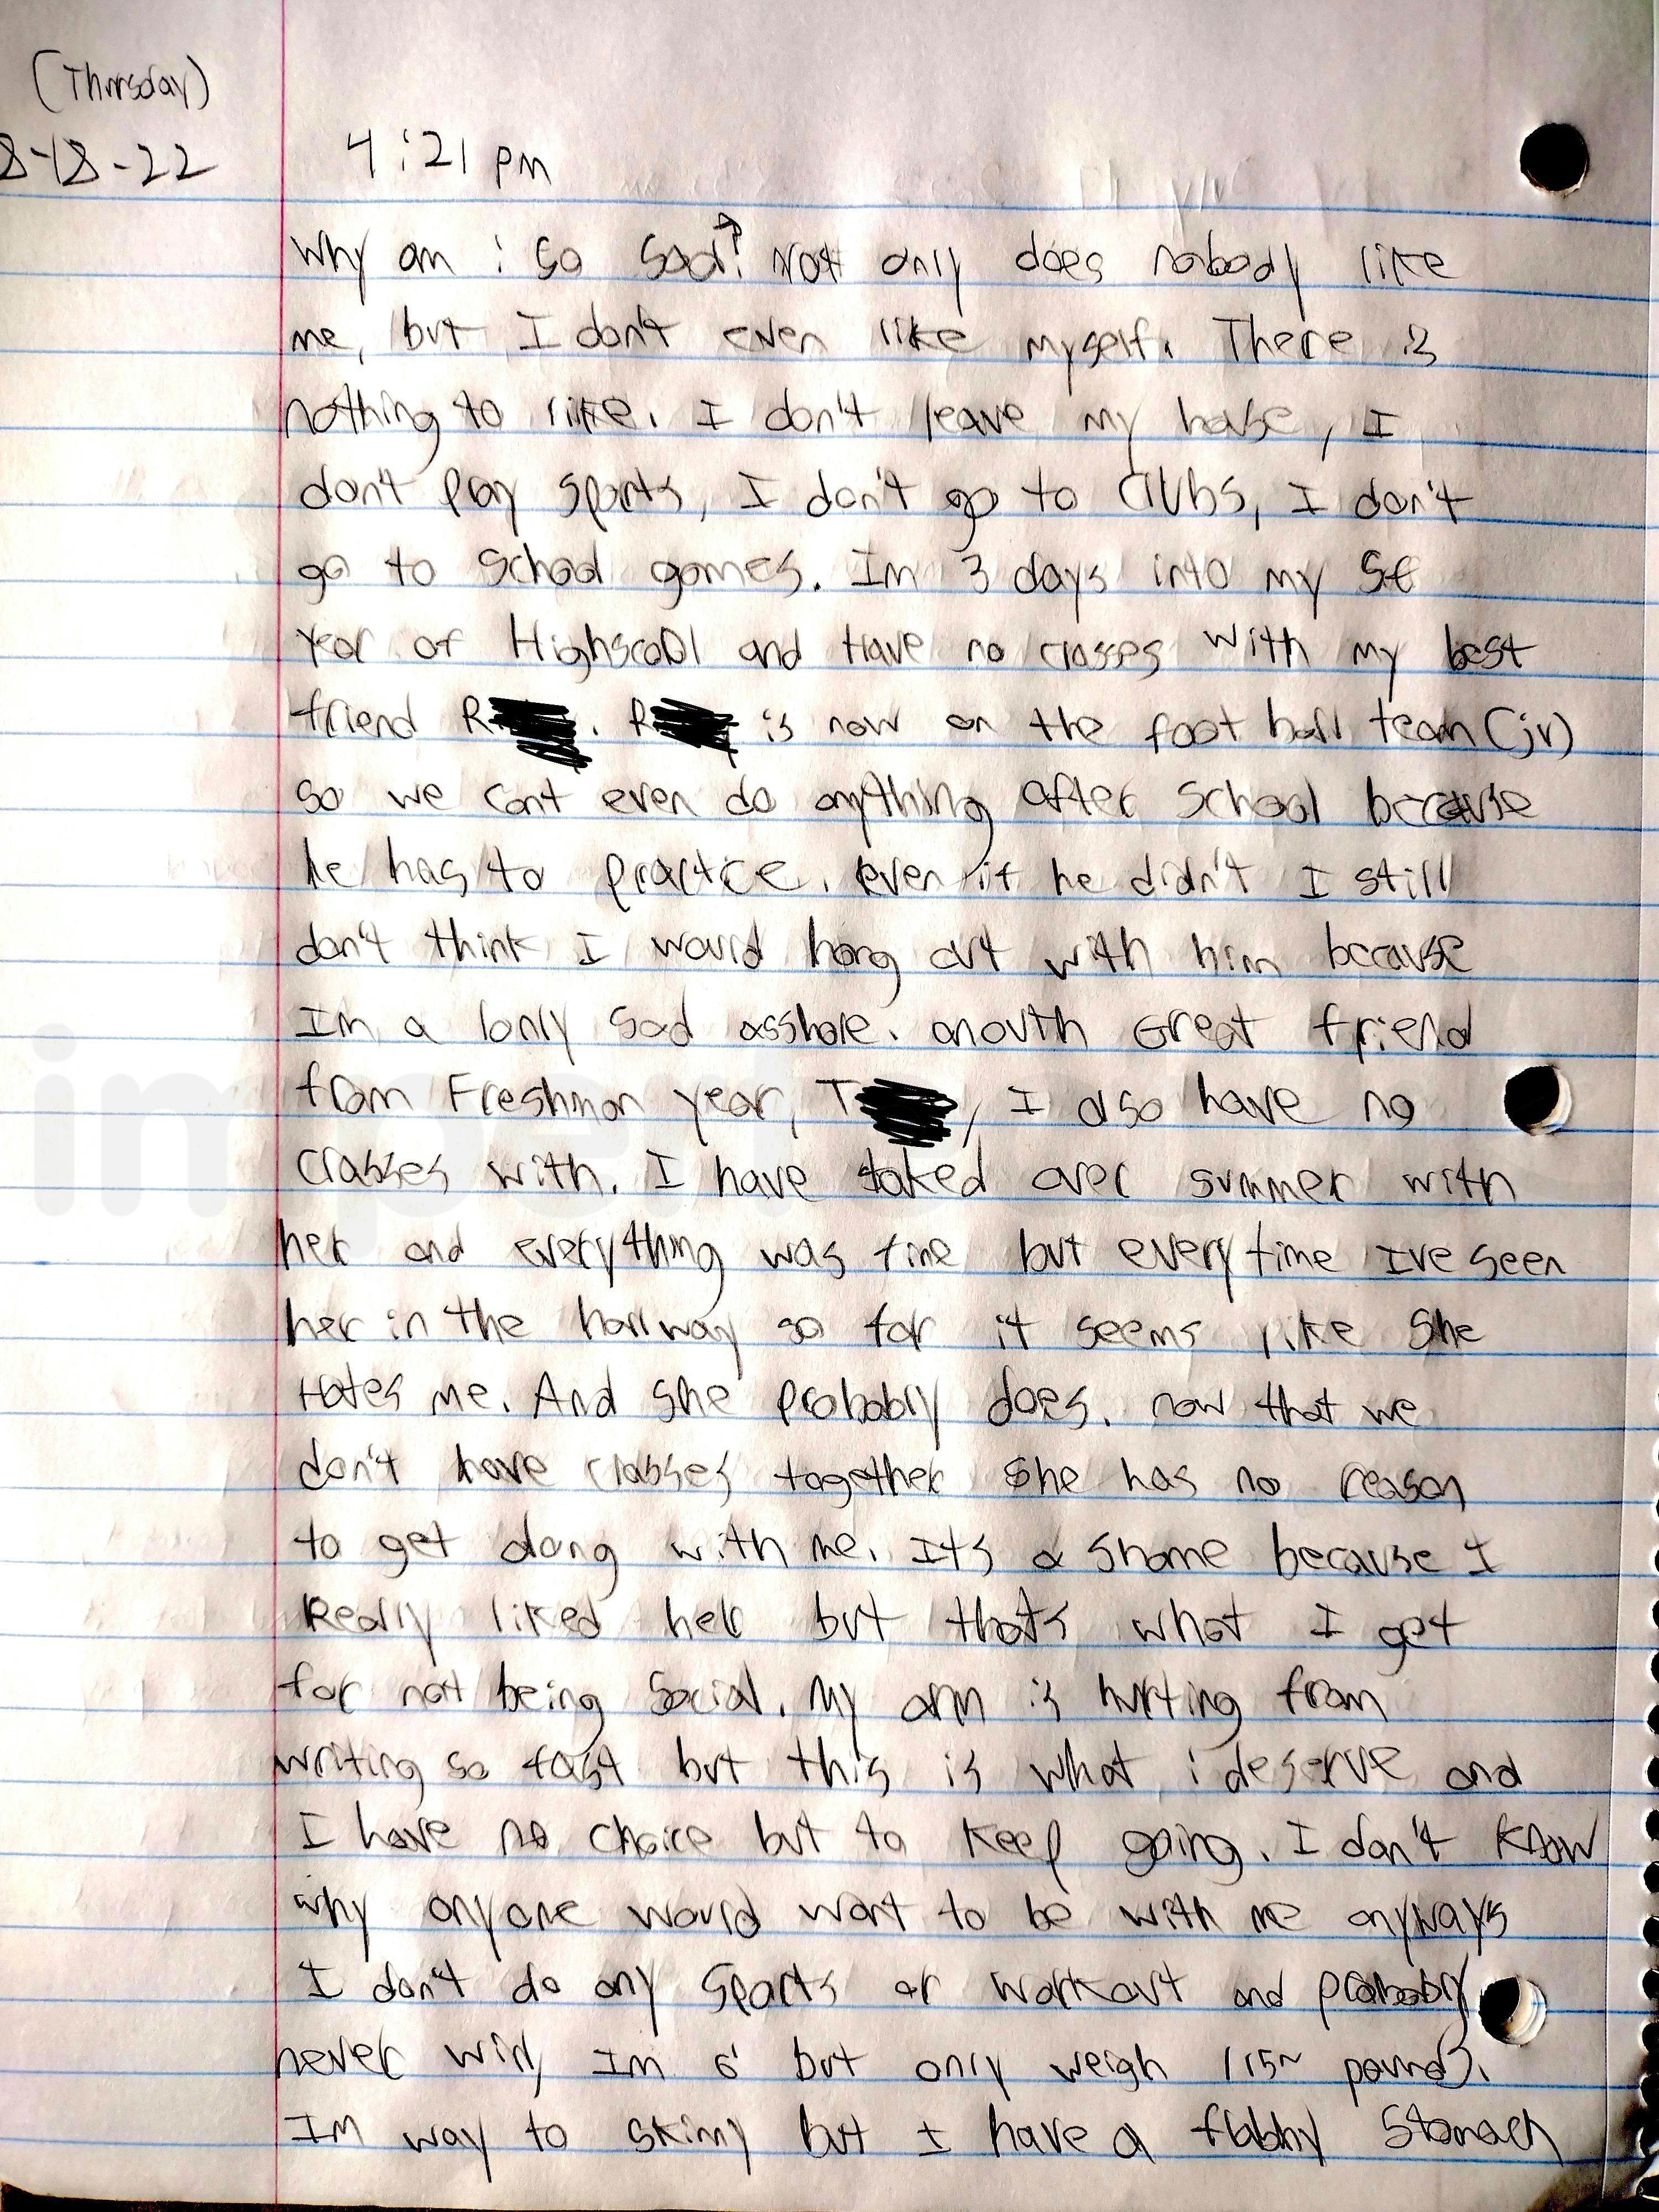 (Thursday)
8-18-22 4:21 pm
Why am i so sad? Not only does nobody like
me, but I don't even like myself. There is
nothing to like. I don't leave my house, I
don't play sports, I don't go to clubs, I don't
go to school games. Im 3 days into my
year of Highscool and Have no classes with my best
friend R . R is now on the foot ball team (jv)
so we cant even do anything after school because
he has to practice. even if he didn't I still
don't think I would hang out with him because
Im a lonly sad asshole. anouth Great friend
from Freshman year, T , I also have no
classes with. I have talked over summer with
her and everything was fine but every time Ive seen
her in the hallway so far it seems like She
Hates me. And she probably does. now that we
don't have classes together she has no reason
to get along with me. Its a shame because I
Really liked her but thats what I get
for not being social. My arm is hurting from
writing so fast but this is what i deserve and
I have no choice but to keep going. I don't know
why anyone would want to be with me anyways
I don't do any sports or workout and probably
never will, Im 6' but only weigh 115~ pounds.
IM way to skinny but I have a flabby stomach
imperf